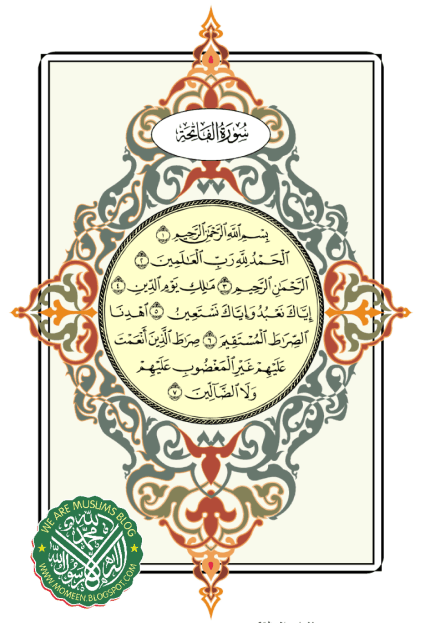 سُورَةُ الفَاتِحَةِ
بِسْمِ ٱللَّهِ ٱلرَّحْمَٰنِ ٱلرَّحِيمِ ١
ٱلْحَمْدُ لِلَّهِ رَبِّ ٱلْعَٰلَمِينَ ٢
ٱلرَّحْمَٰنِ ٱلرَّحِيمِ ٣ مَٰلِكِ يَوْمِ ٱلدِّينِ ٤
إِيَّاكَ نَعْبُدُ وَإِيَّاكَ نَسْتَعِينُ ٥ ٱهْدِنَا
ٱلصِّرَٰطَ ٱلْمُسْتَقِيمَ ٦ صِرَٰطَ ٱلَّذِينَ أَنْعَمْتَ
عَلَيْهِمْ غَيْرِ ٱلْمَغْضُوبِ عَلَيْهِمْ
وَلَا ٱلضَّآلِّينَ ٧
WE ARE MUSLIMS BLOG
WWW.MOMEEN.BLOGSPOT.COM